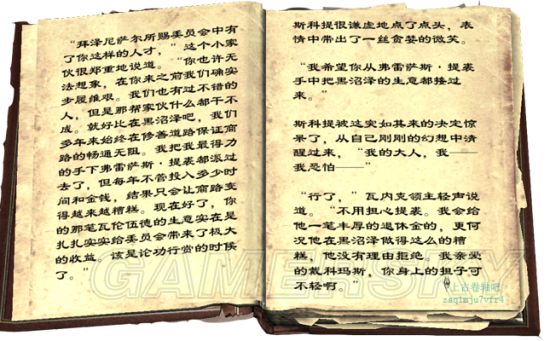 “拜泽尼萨尔所赐委员会中有
了你这样的人才，”这个小家
伙很郑重地说道。“你也许无
法想象，在你来之前我们确实
步履维艰。我们也有过不错的
人，但是那帮家伙什么都干不
成。就好比在黑沼泽吧，我们
多年来始终在修善道路保证商
路的畅通无阻。我把我最得力
的手下弗雷萨斯·提裘都派过
去了，但每年不管投入多少时
间和金钱，结果只会让商路变
得越来越糟糕。现在好了，你
的那笔瓦伦伍德的生意实在是
扎扎实实给委员会带来了极大
的收益。该是论功行赏的时候
了。”
斯科提很谦虚地点了点头，表
情中带出了一丝贪婪的微笑。
“我希望你从弗雷萨斯·提裘
手中把黑沼泽的生意都接过
来。”
斯科提被这突如其来的决定惊
呆了，从自己刚刚的幻想中清
醒过来，“我的大人，我——
我恐怕——”
“行了，”瓦内克领主轻声说
道。“不用担心提裘。我会给
他一笔丰厚的退休金的，更何
况他在黑沼泽做得这么的糟
糕，他没有理由拒绝。我亲爱
的戴科玛斯，你身上的担子可
不轻啊。”
GAMERSKY
上古卷轴吧
zaq1mju7vfr4